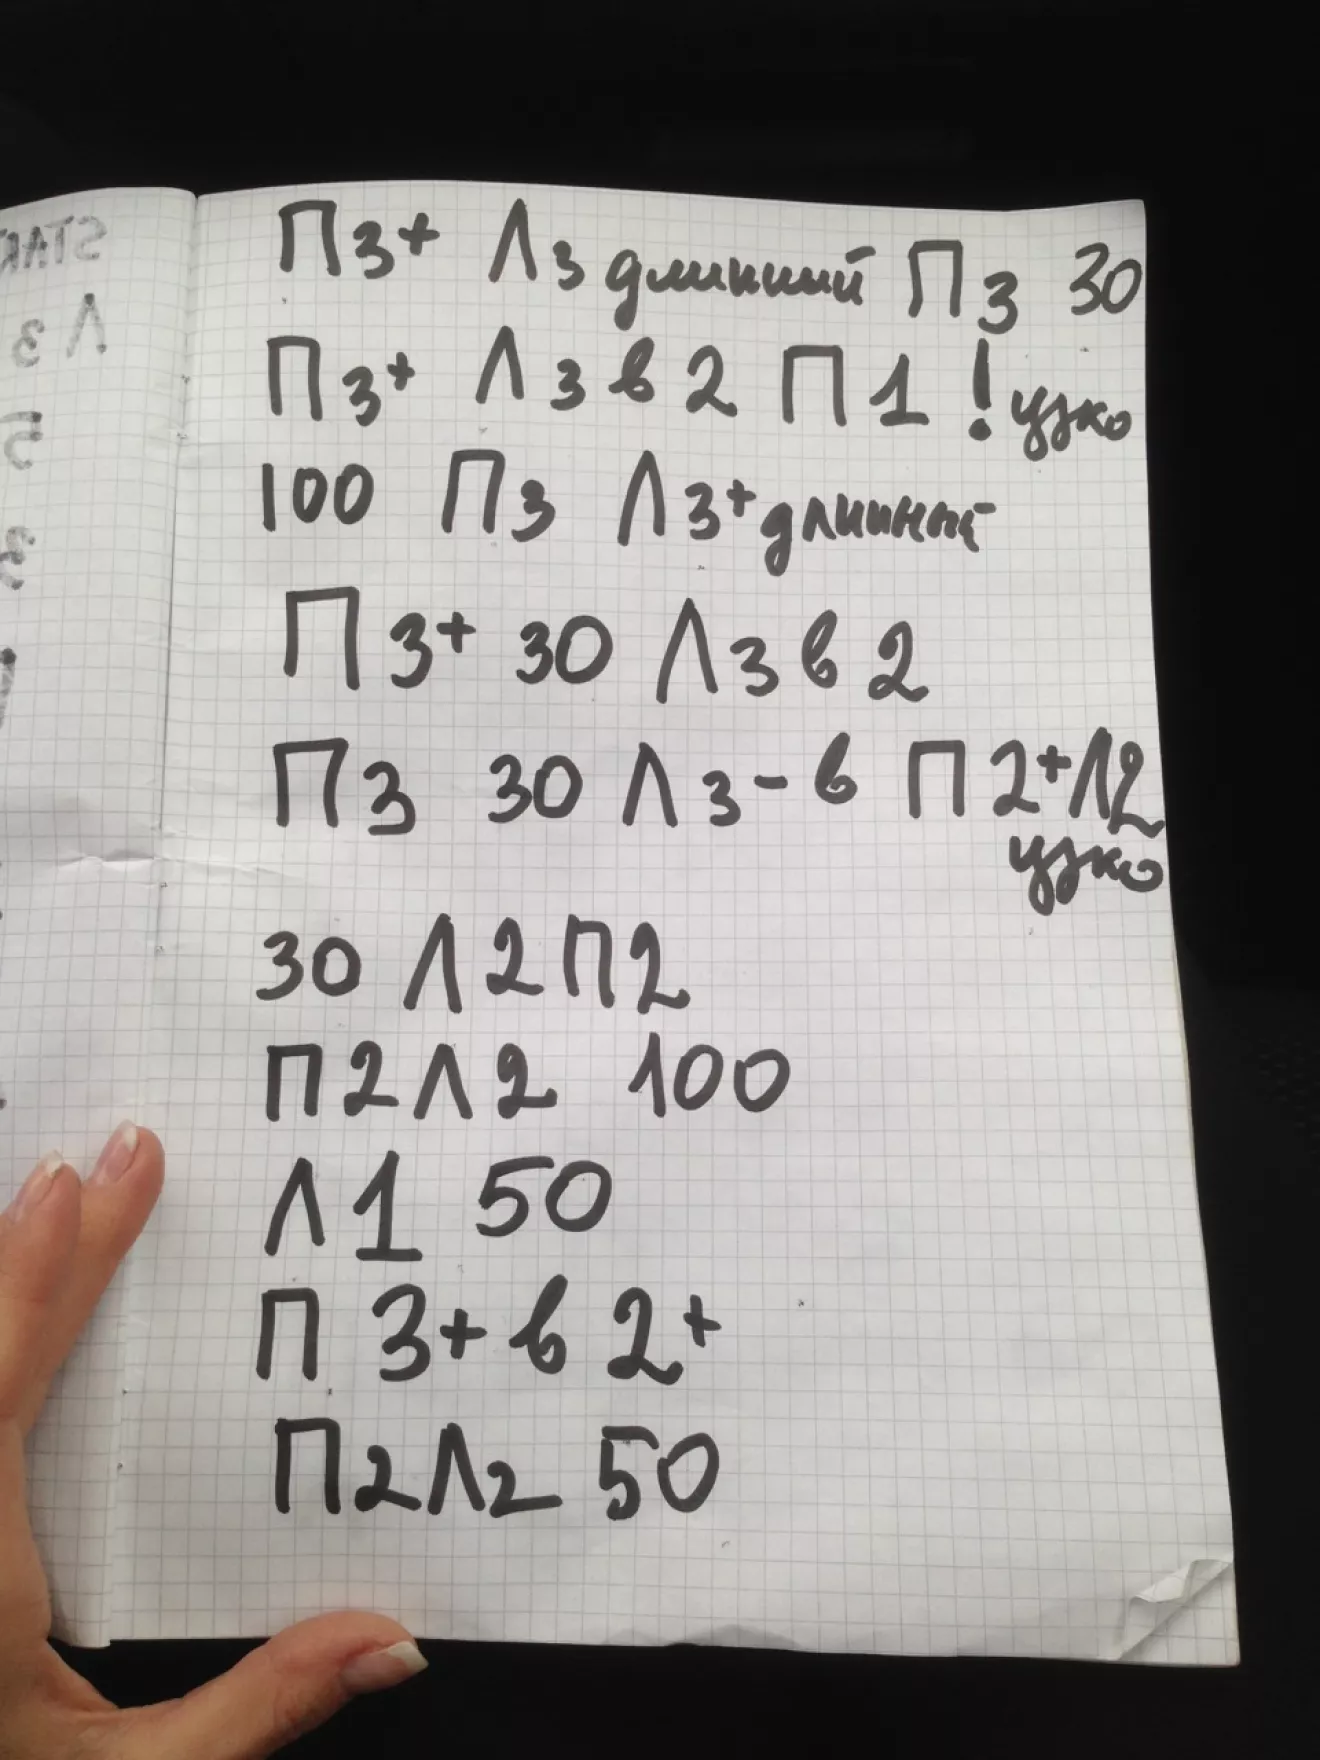 START
Л 3
5
3
П3+ Л3 длинный П3 30
П3+ Л3 в 2 П 1 ! узко
100 П3 Л3+ длинный
П 3+ 30 Л3 в 2
П3 30 Л3- в П 2+ Л2
узко
30 Л2 П2
П2 Л2 100
Л1 50
П 3+ в 2+
П2 Л2 50